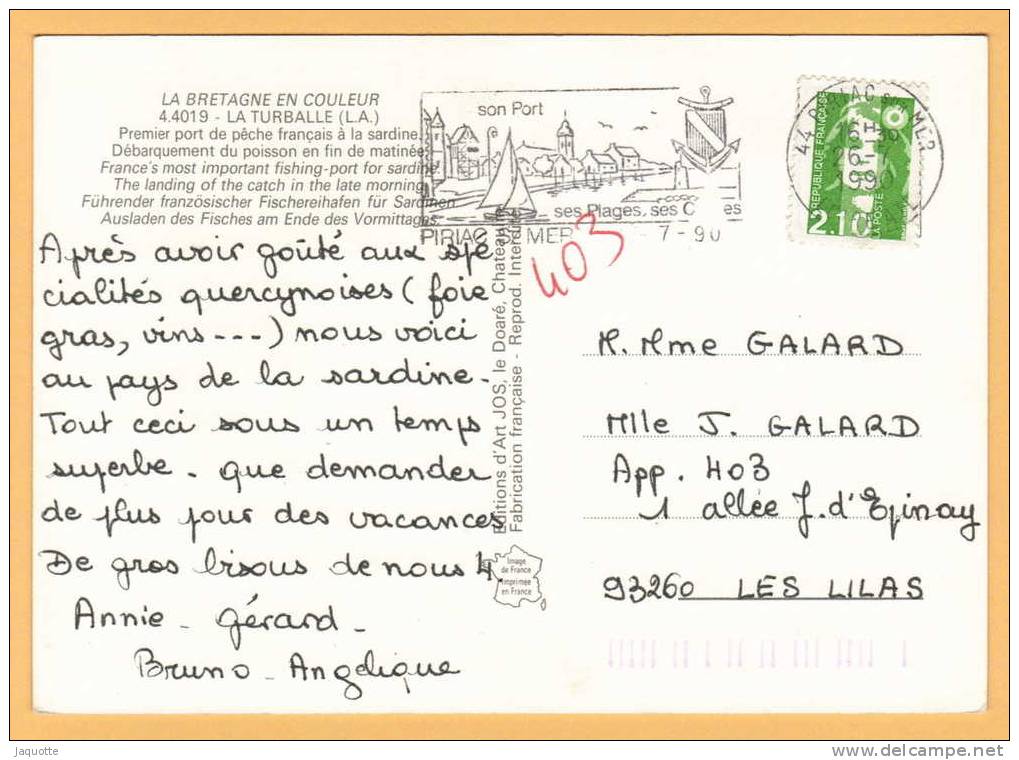 LA BRETAGNE EN COULEUR
4.4019 - LA TURBALLE (L.A.)
Premier port de pêche français à la sardine.
Débarquement du poisson en fin de matinée
France's most important fishing-port for sardine.
The landing of the catch in the late morning
Führender französischer Fischereihafen für Sardinen
Ausladen des Fisches am Ende des Vormittages
Après avoir goûté aux spé
cialités quercynoises (foie
gras, vins ---) nous voici
au pays de la sardine.
Tout ceci sous un temps
superbe - que demander
de plus pour des vacances
De gros bisous de nous 4.
Annie - Gérard -
Bruno - Angélique
Editions d'Art JOS, le Doaré,
Fabrication française - Reprod.
Image
de France
imprimée
en France
son Port
ses Plages, ses
PIRIAC MER 7-90
403
44 PIRIAC S/ MER
16H30
26-7
1990
REPUBLIQUE FRANÇAISE
2.10
LA POSTE
M. Mme GALARD
Mlle J. GALARD
App. 403
1 allée J. d'Epinay
93260 LES LILAS
Jaquotte
www.delcampe.net